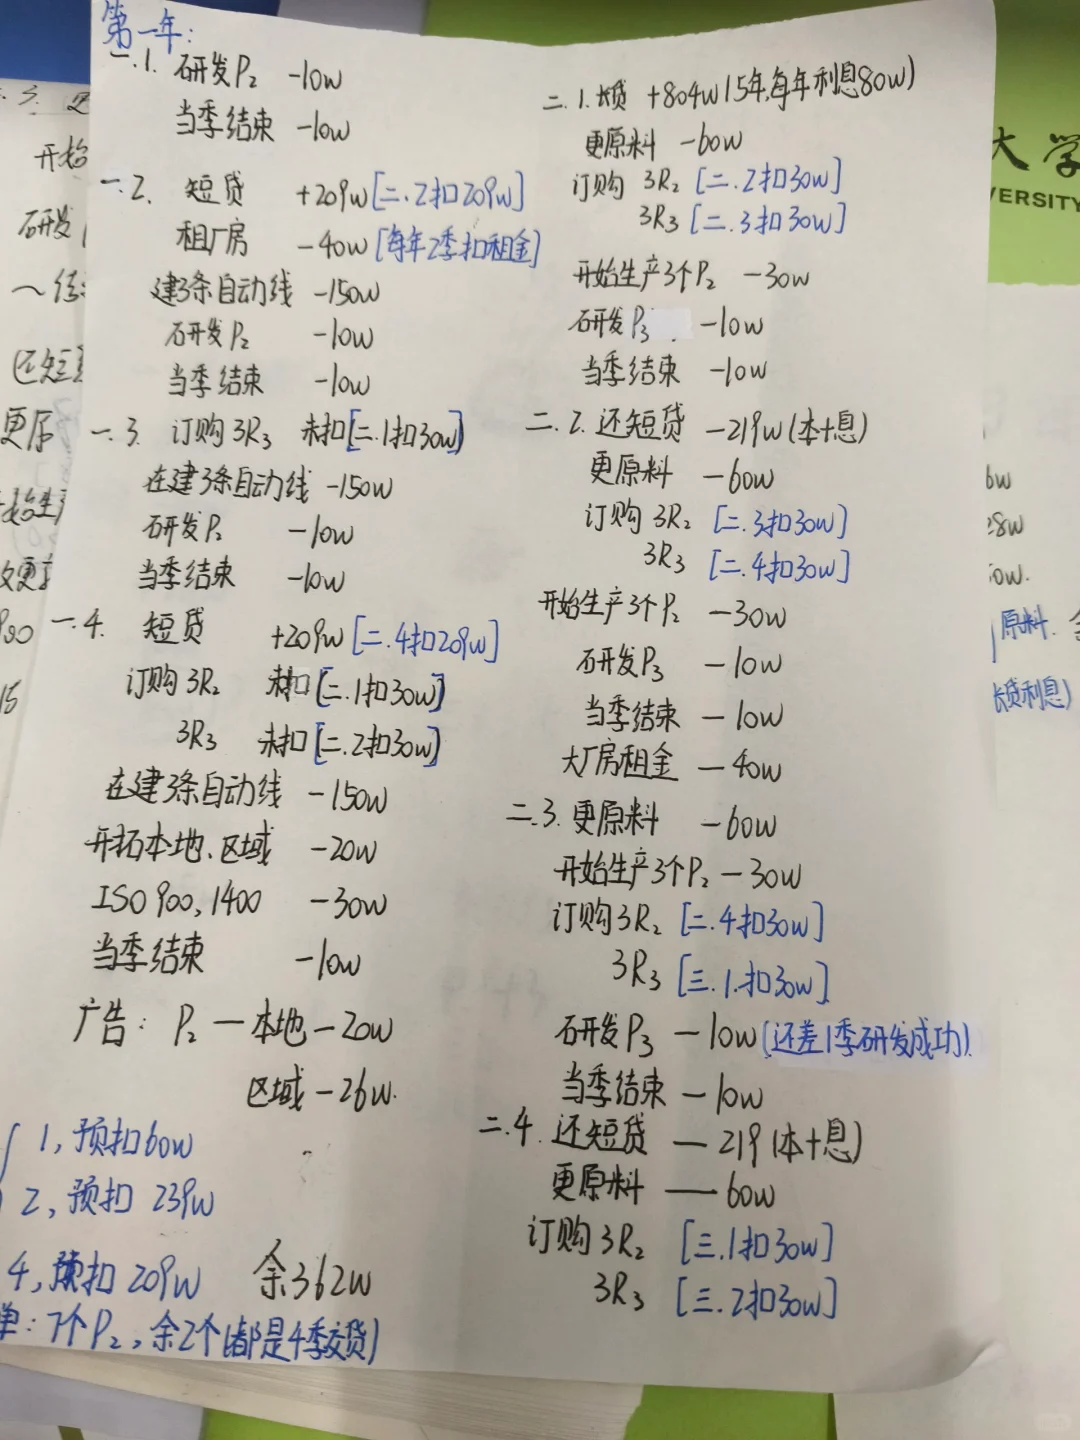 第一年:
一.1. 研发P₂ -10w
当季结束 -10w
一.2. 短贷 +209w[二.2扣209w]
租厂房 -40w[每年2季扣租金]
建3条自动线 -150w
研发P₂ -10w
当季结束 -10w
一.3. 订购3R₃ 未扣[二.1扣30w]
在建3条自动线 -150w
研发P₂ -10w
当季结束 -10w
一.4. 短贷 +209w[二.4扣209w]
订购3R₂ 未扣[二.1扣30w]
3R₃ 未扣[二.2扣30w]
在建3条自动线 -150w
开拓本地、区域 -20w
ISO 900, 1400 -30w
当季结束 -10w
广告: P₂ — 本地 -20w
区域 -26w.
1, 预扣60w
2, 预扣 239w
4, 预扣 209w 余362w
单: 7个P₂, 余2个(都是4季交货)
二.1.长贷 +804w(5年,每年利息80w)
更原料 -60w
订购 3R₂ [二.2扣30w]
3R₃ [二.3扣30w]
开始生产3个P₂ -30w
研发P₃ -10w
当季结束 -10w
二.2.还短贷 -219w(本+息)
更原料 -60w
订购 3R₂ [二.3扣30w]
3R₃ [二.4扣30w]
开始生产3个P₂ -30w
研发P₃ -10w
当季结束 -10w
大厂房租金 -40w
二.3.更原料 -60w
开始生产3个P₂ -30w
订购3R₂ [二.4扣30w]
3R₃ [三.1.扣30w]
研发P₃ -10w(还差1季研发成功).
当季结束 -10w
二.4.还短贷 -219(本+息)
更原料 —60w
订购3R₂ [三.1扣30w]
3R₃ [三.2扣30w]
开始
研发
还短
更原
大学
VERSITY
原料.
长贷利息)